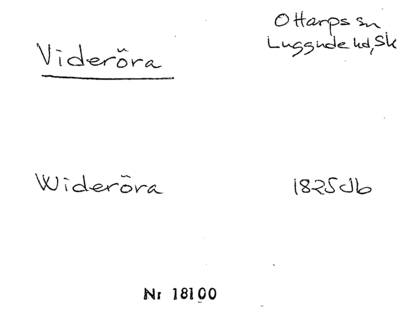 Videröra
O Harps sn
Luggude hd, Sk
Wideröra
1825 Jb
Nr 18100